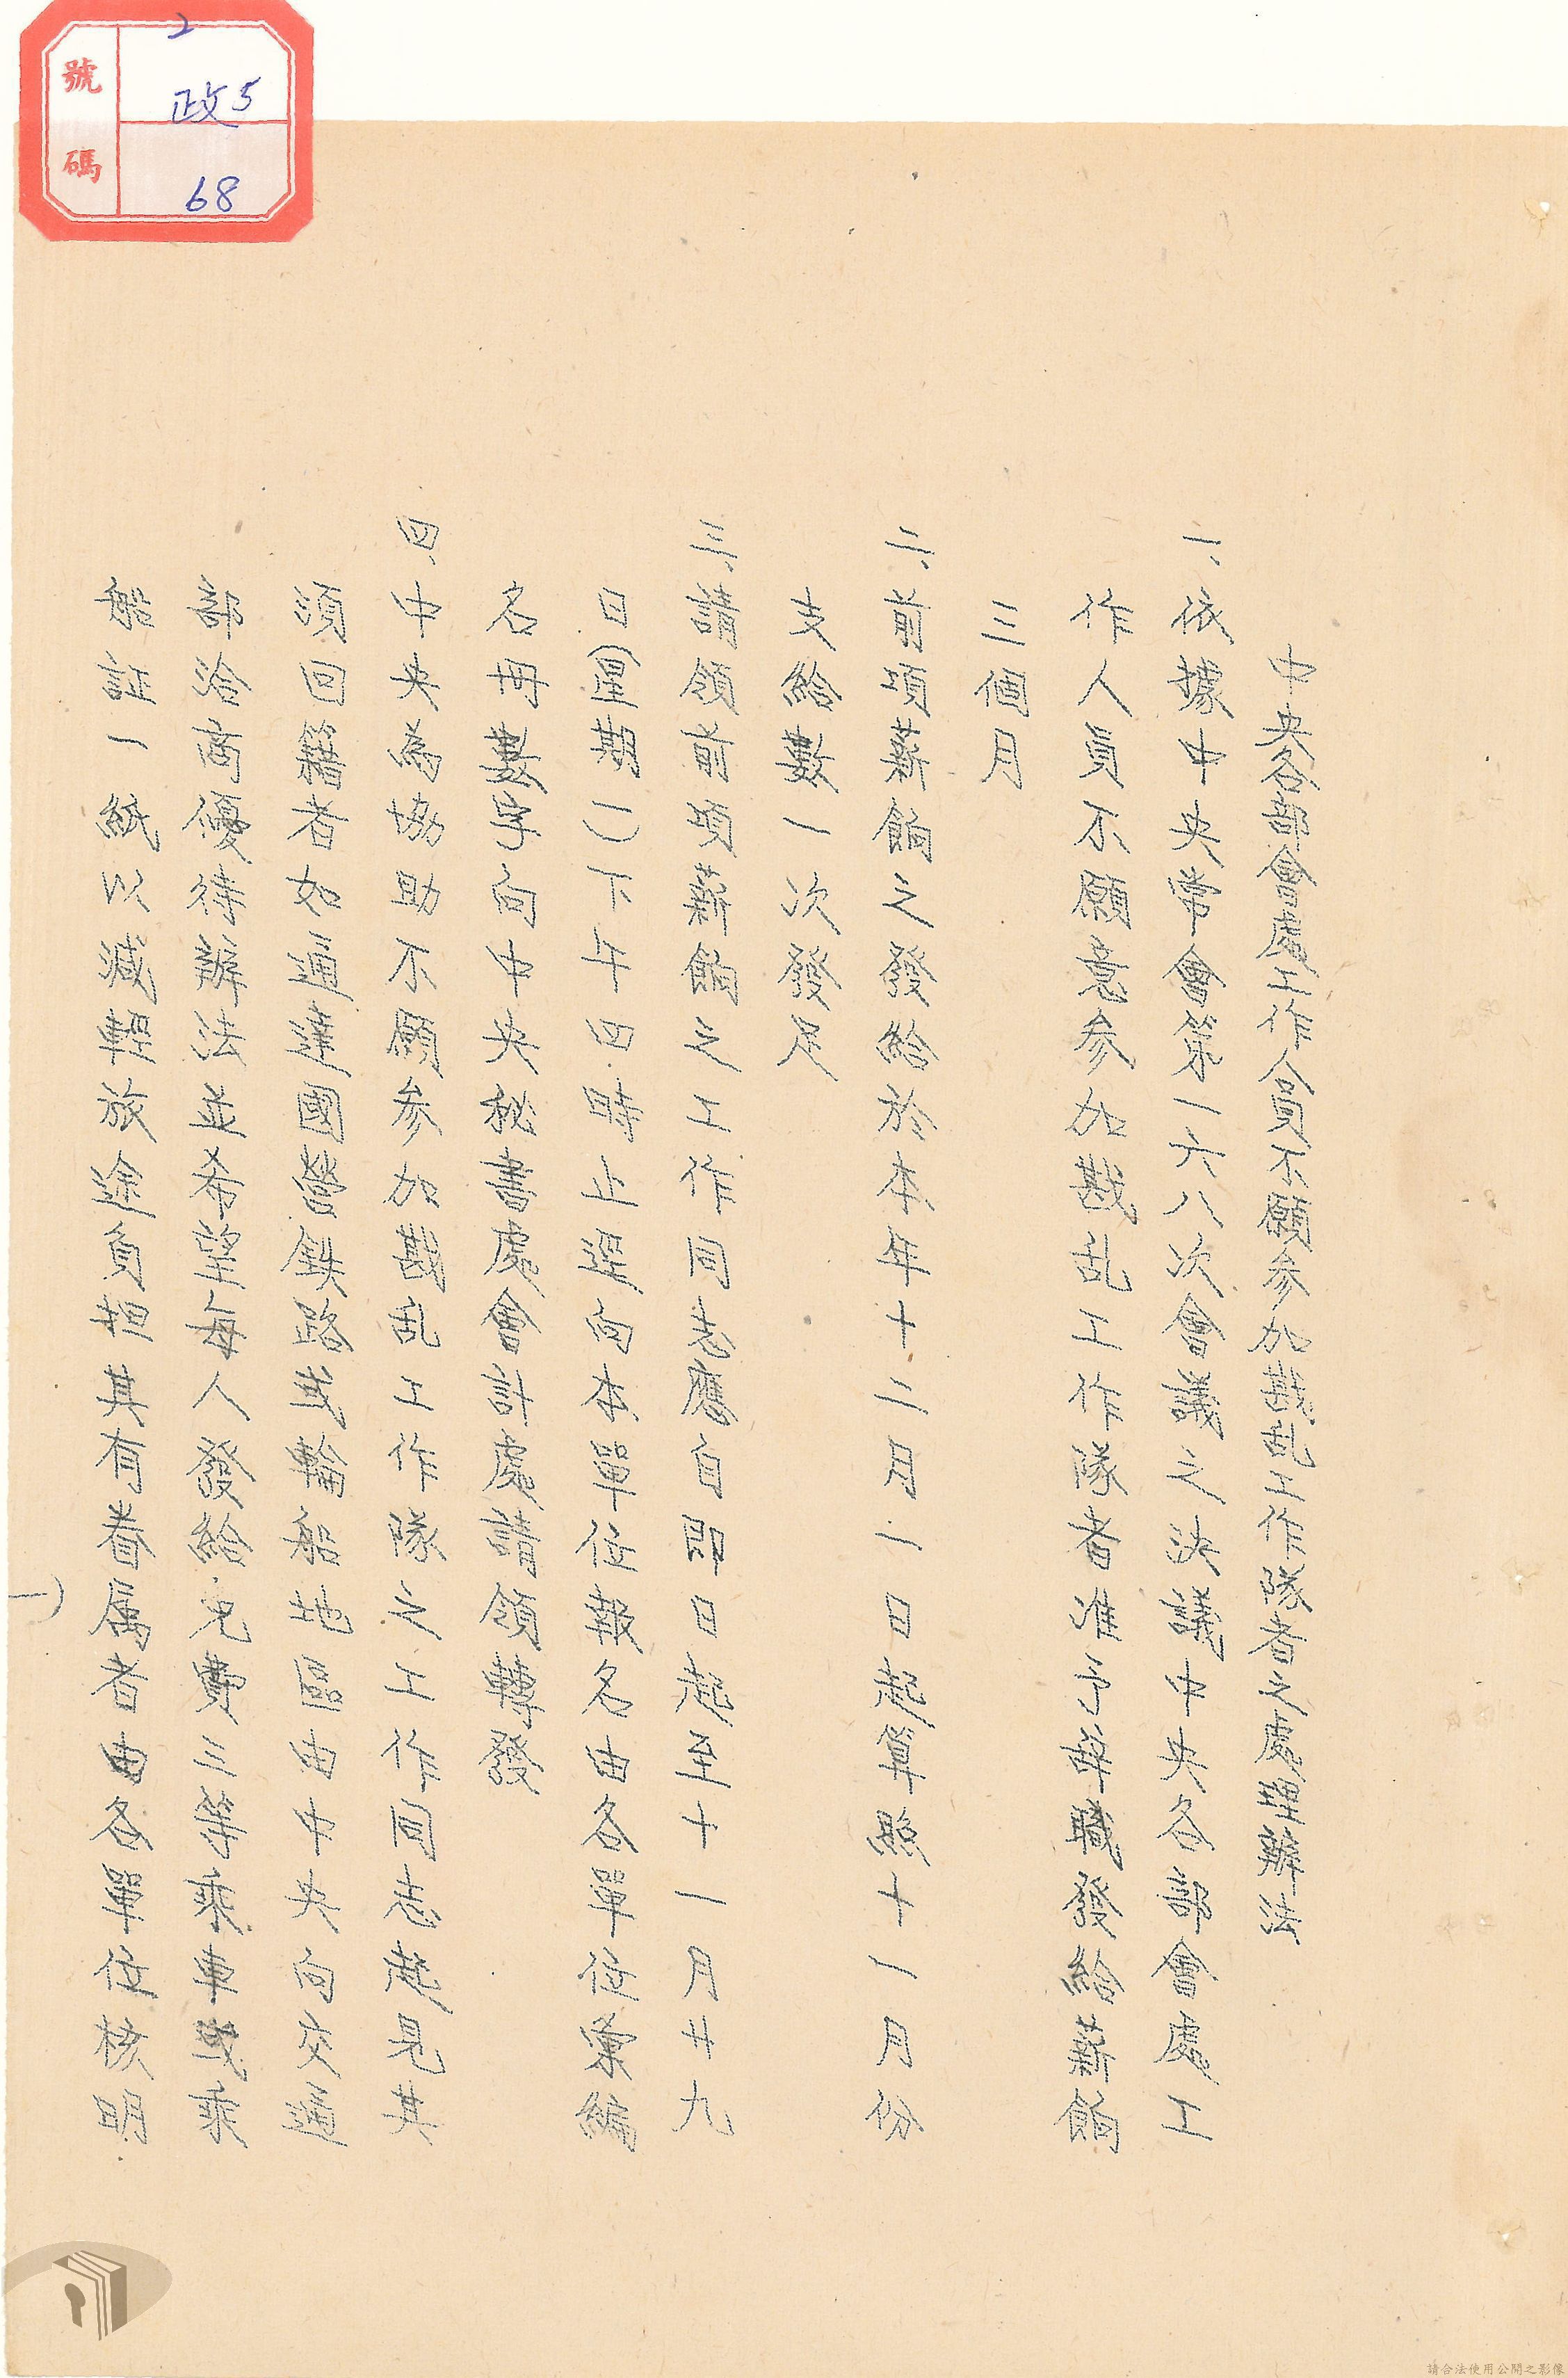 號碼
2
政5
68
中央各部會處工作人員不願参加戡乱工作隊者之處理辦法
一、依據中央常會第一六八次會議之決議中央各部會處工
作人員不願意参加戡乱工作隊者准予辞職發給薪餉
三個月
二、前項薪餉之發給於本年十二月一日起算照十一月份
支給數一次發足
三、請領前項薪餉之工作同志應自即日起至十一月廿九
日(星期一)下午四時止逕向本單位報名由各單位彙編
名冊數字向中央秘書處會計處請領轉發
四、中央為協助不願参加戡乱工作隊之工作同志起見其
須回籍者如通達國營鉄路或輪船地區由中央向交通
部洽商優待辦法並希望每人發給免費三等乘車或乘
船証一紙以減輕旅途負担其有眷属者由各單位核明
一)
請合法使用公開之影像